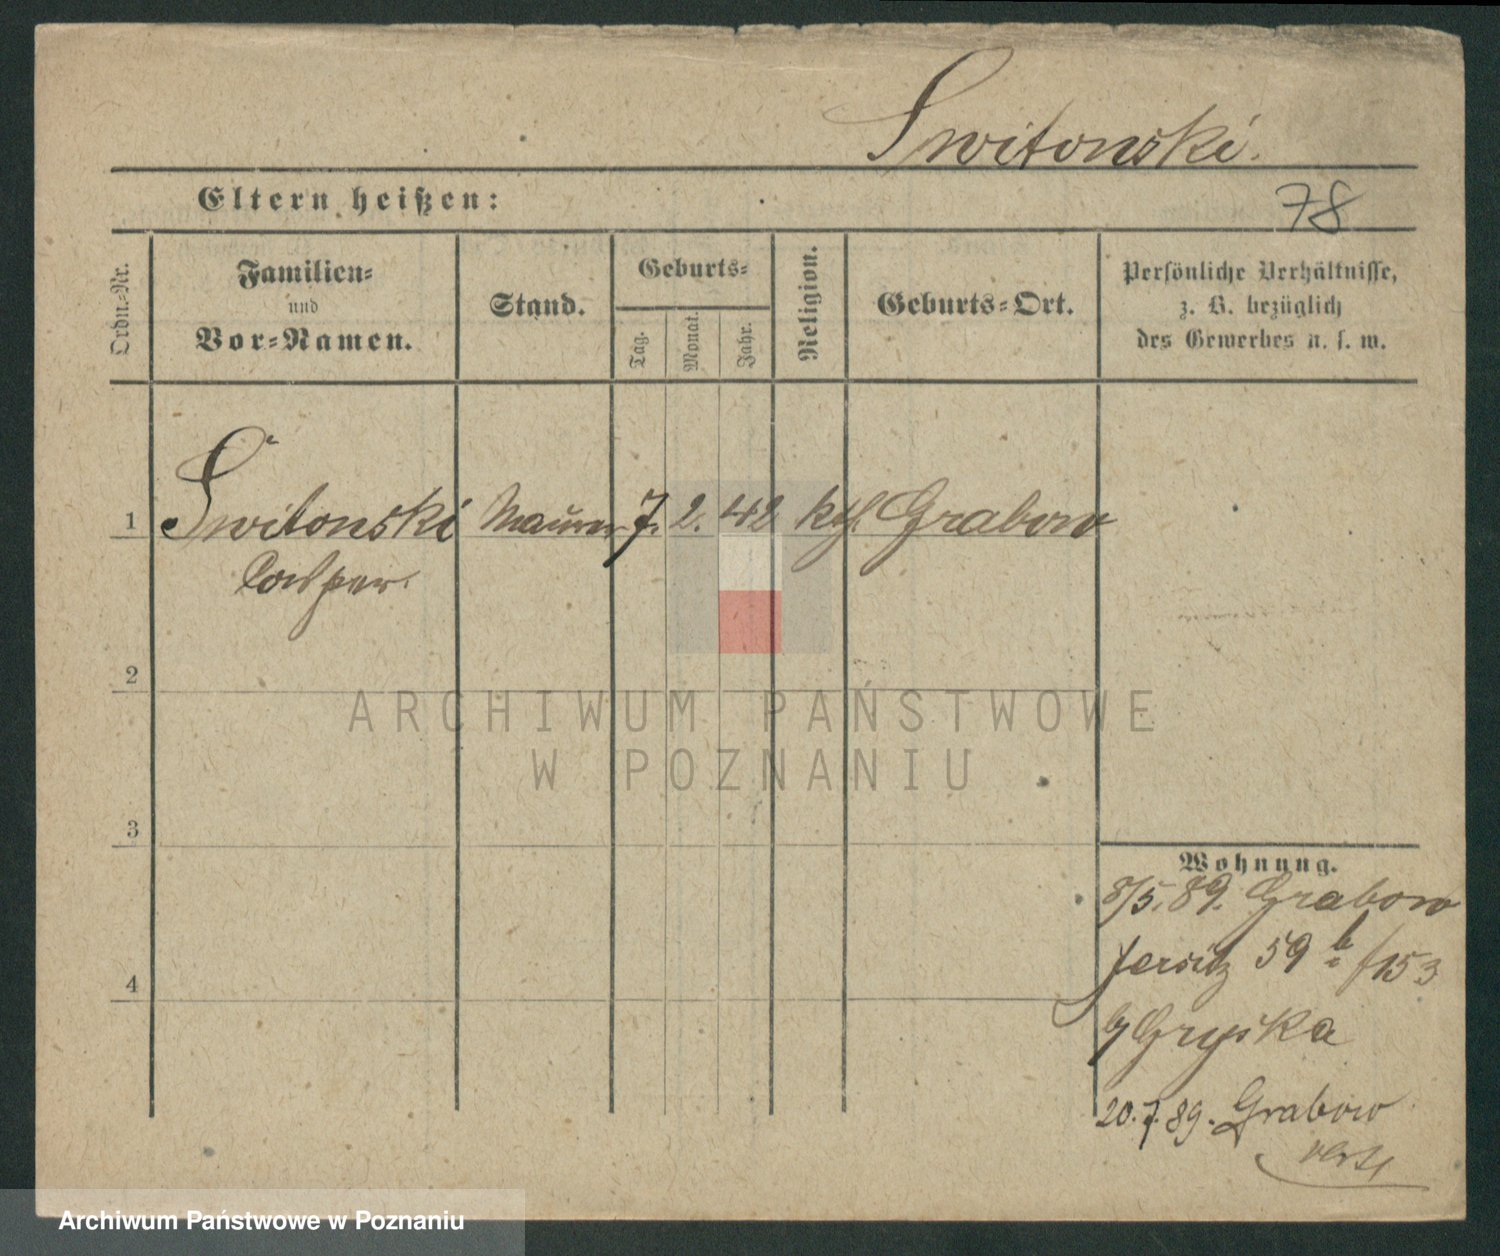 Switonski.
Eltern heißen:
78
Ordn.-Nr.
Familien-
und
Vor-Namen.
Stand.
Geburts-
Tag.
Monat.
Jahr.
Religion.
Geburts-Ort.
Persönliche Verhältnisse,
z. B. bezüglich
des Gewerbes u. s. w.
1 Switonski Maurer 7. 2. 42 kth. Grabow
Casper.
2
3
4
Wohnung.
8/5. 89. Grabow
Jersitz 59 b /153
b/ Gryska
20. 7. 89. Grabow
ARCHIWUM PAŃSTWOWE
W POZNANIU
Archiwum Państwowe w Poznaniu